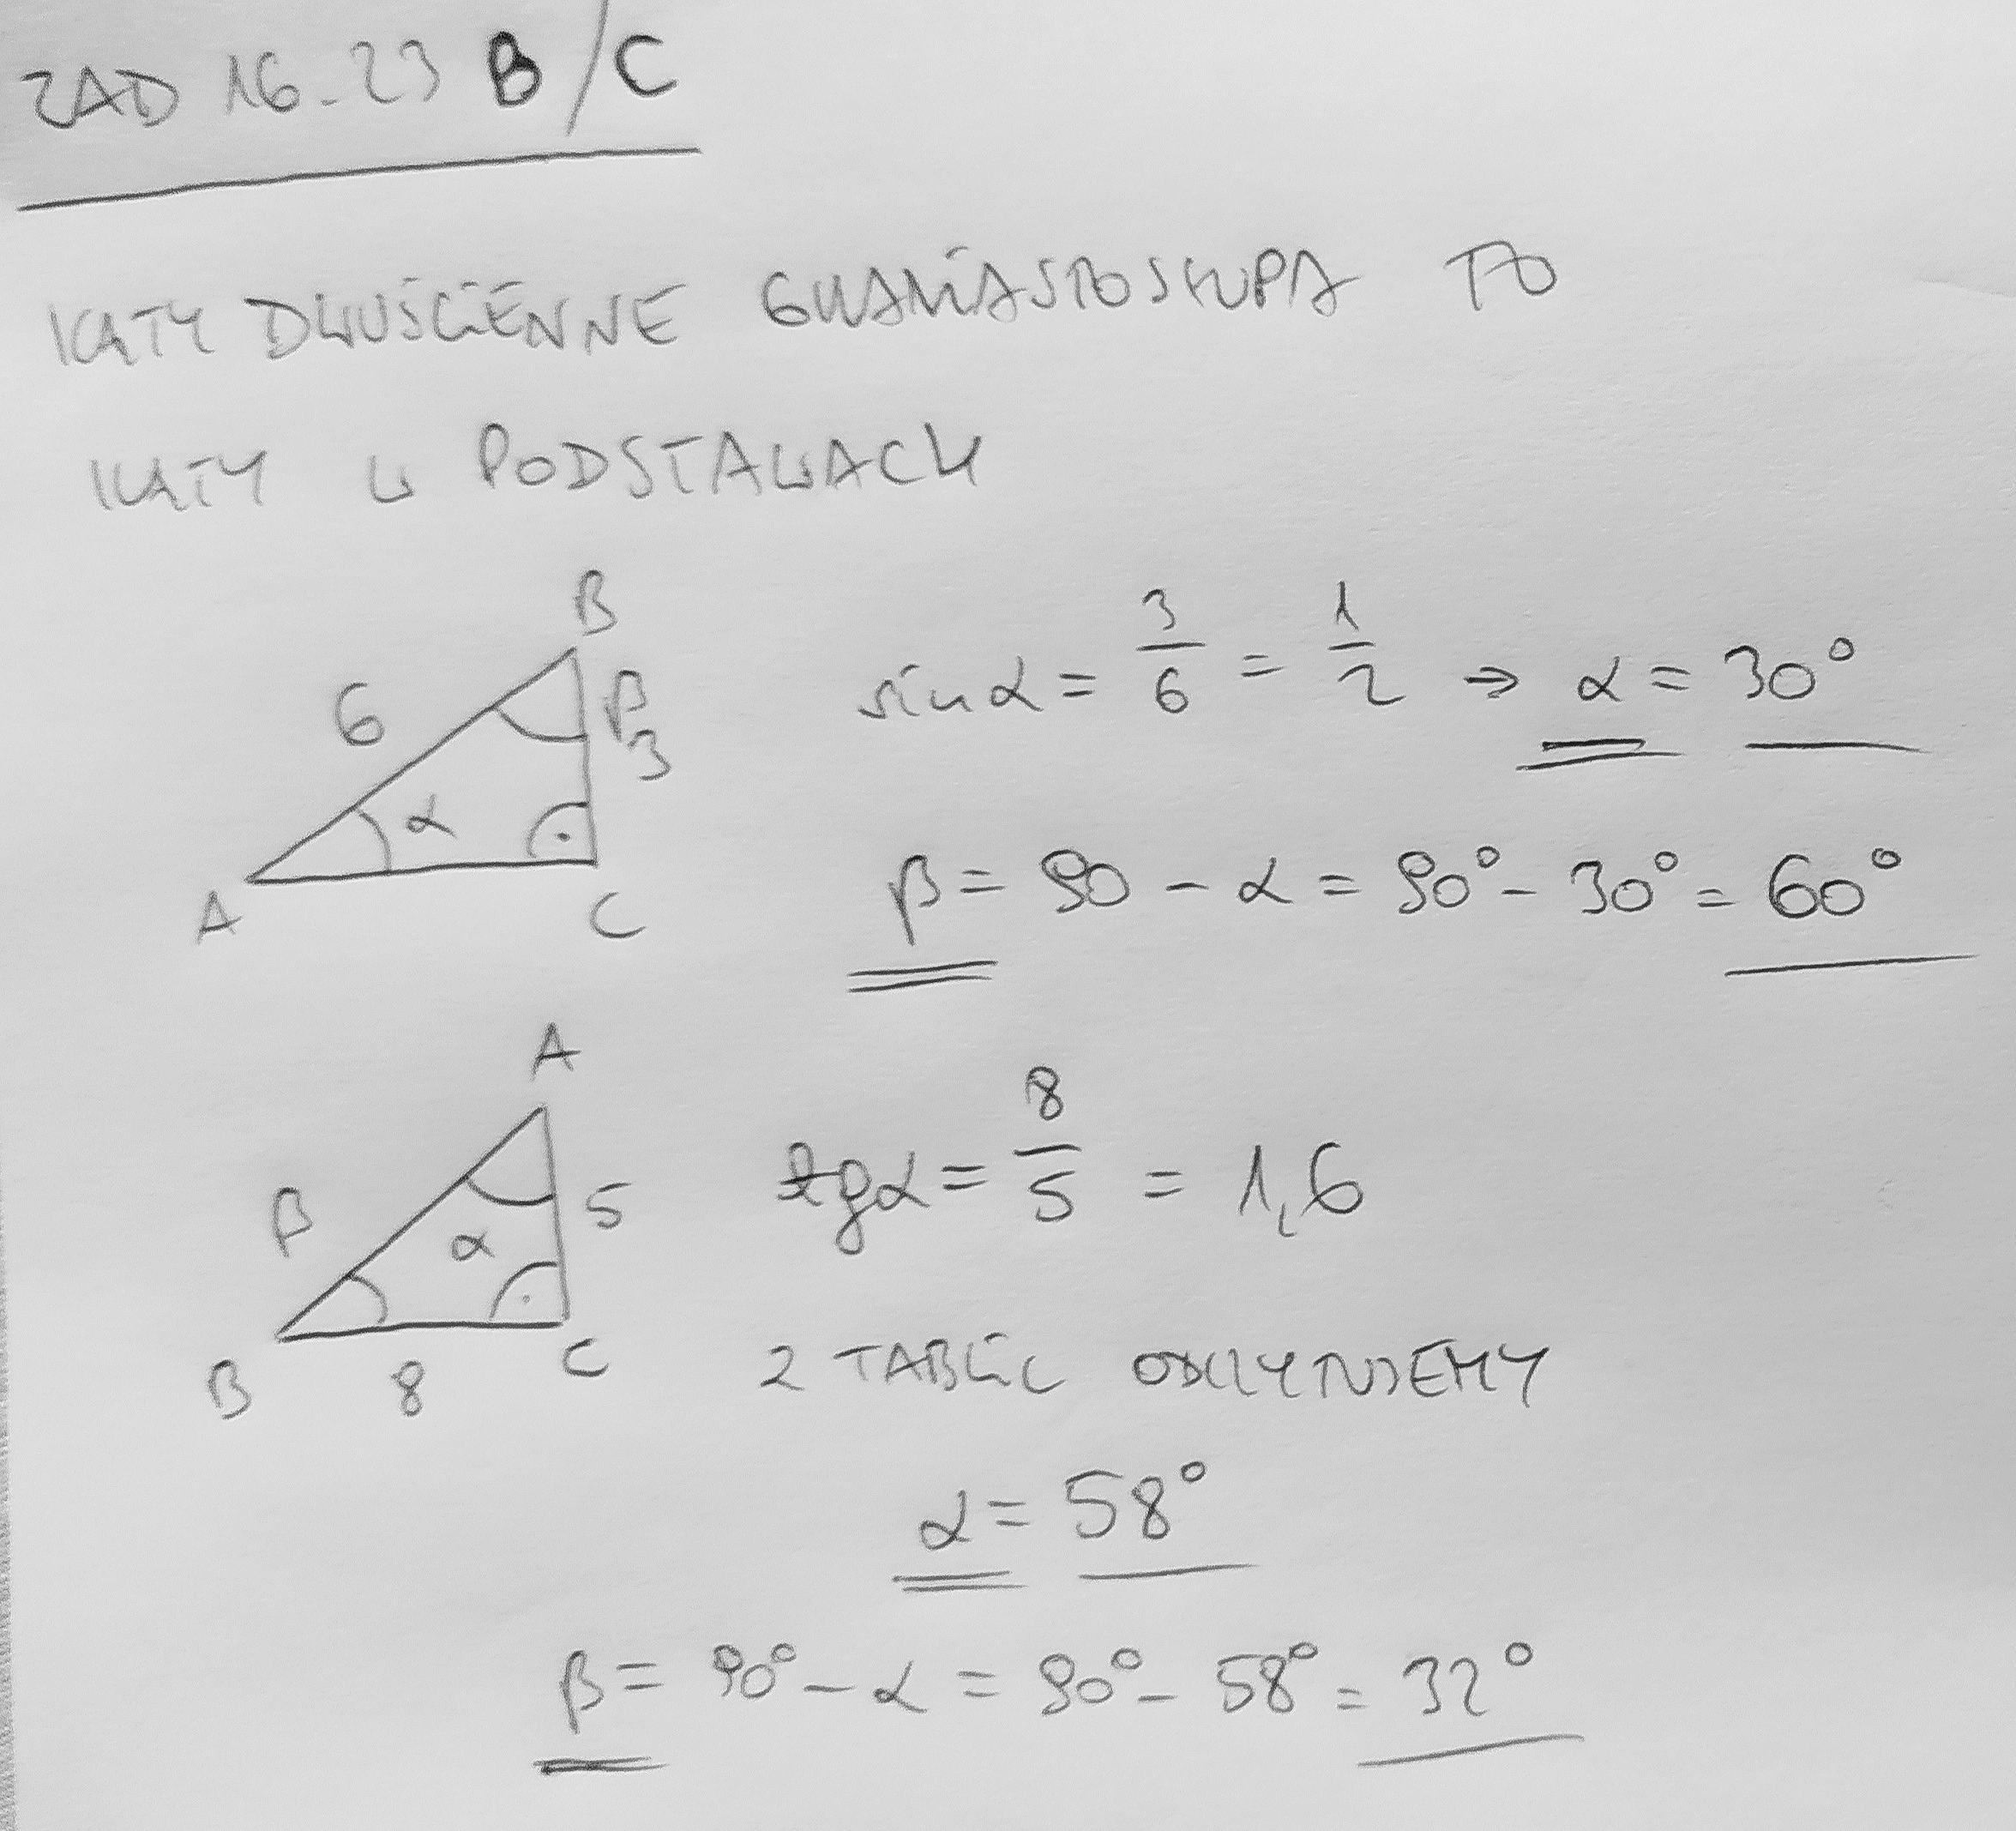 ZAD 16.23 B/C
KĄTY DWUŚCIENNE GRANIASTOSŁUPA TO
KĄTY W PODSTAWACH
B
6
β
3
α
A
C
sin α = 3/6 = 1/2 → α = 30°
β = 90 - α = 90° - 30° = 60°
A
β
5
α
B
8
C
tg α = 8/5 = 1,6
Z TABLIC ODCZYTUJEMY
α = 58°
β = 90° - α = 90° - 58° = 32°